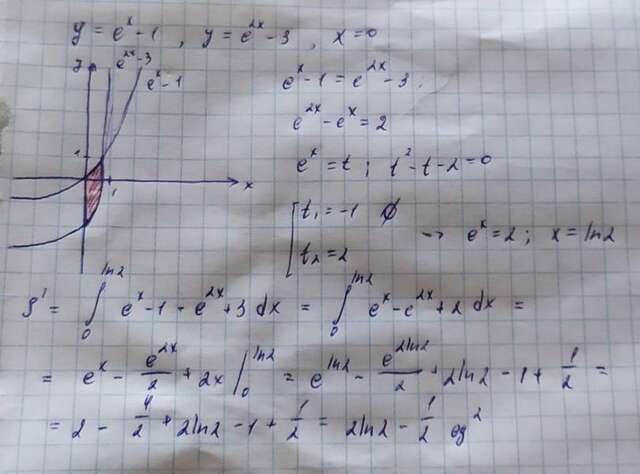 y = e^x - 1 , y = e^{2x} - 3 , x = 0
y
e^{2x} - 3
e^x - 1
1
1
x
e^x - 1 = e^{2x} - 3 ;
e^{2x} - e^x = 2
e^x = t ; t^2 - t - 2 = 0
[ t_1 = -1 ∅
t_2 = 2 → e^x = 2 ; x = ln2
S = ∫_0^{ln2} e^x - 1 - e^{2x} + 3 dx = ∫_0^{ln2} e^x - e^{2x} + 2 dx =
= e^x - e^{2x}/2 + 2x |_0^{ln2} = e^{ln2} - e^{2ln2}/2 + 2ln2 - 1 + 1/2 =
= 2 - 4/2 + 2ln2 - 1 + 1/2 = 2ln2 - 1/2 ед^2